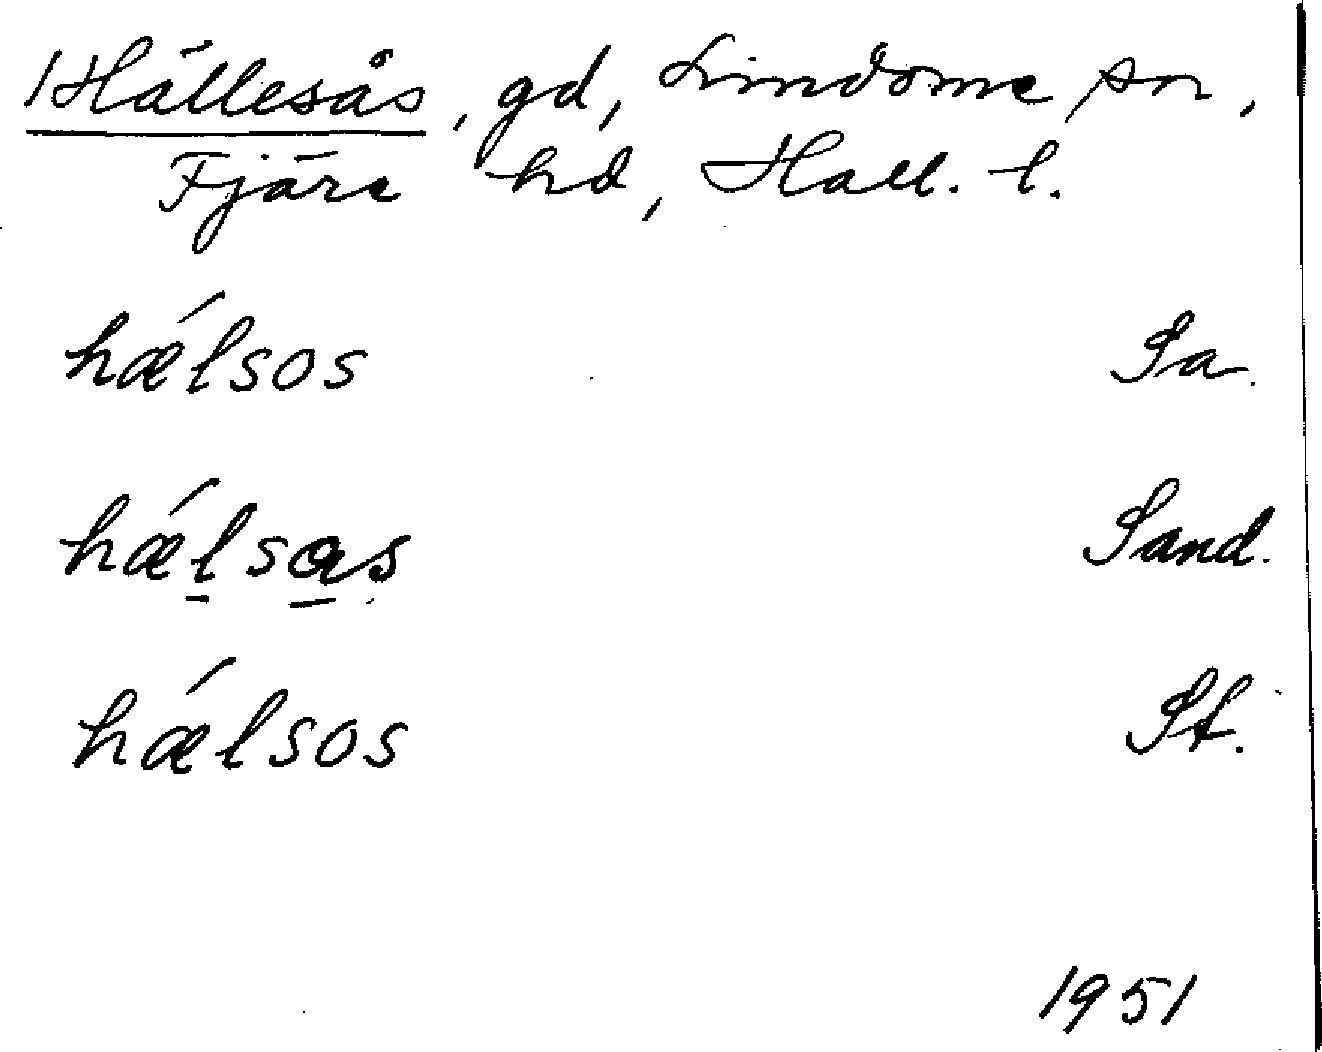 Hällesås, gd, Lindome sn,
Fjäre hd, Hall. l.
hǽlsos Sa.
hǽl̠sa̠s Sand.
hǽlsos St.
1951